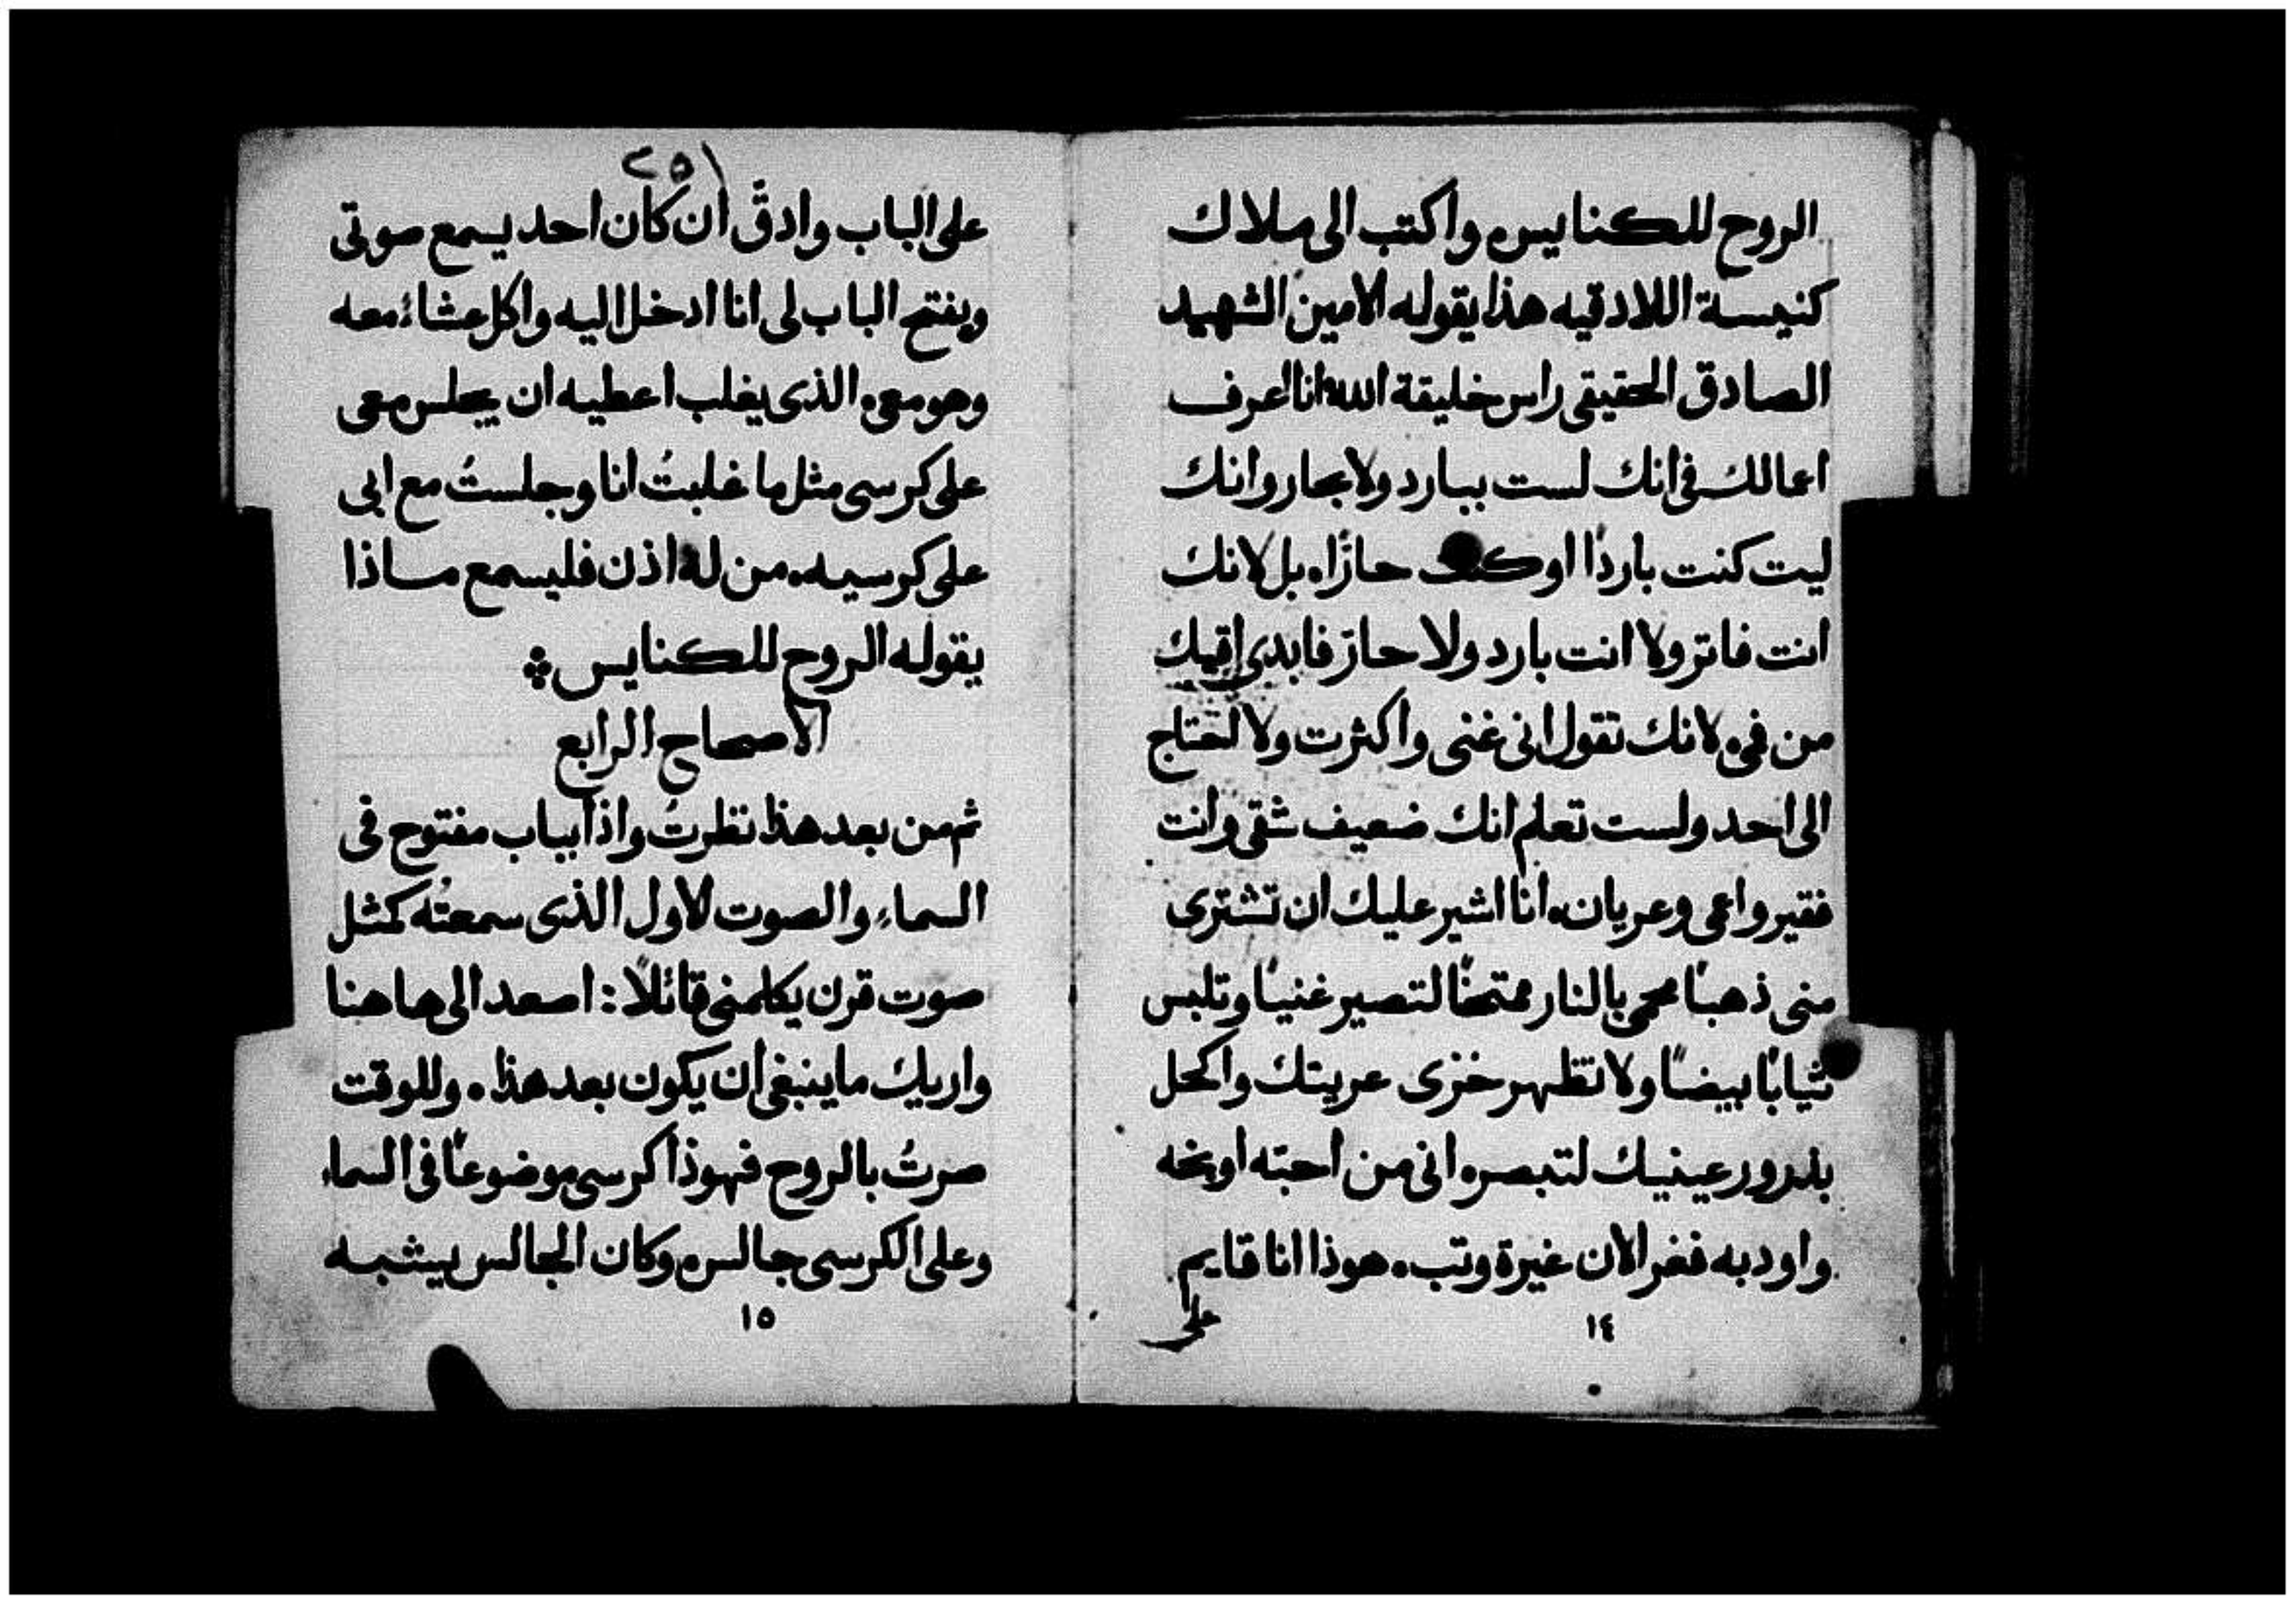 الروح للكنايس، واكتب الى ملاك
كنيسة اللادقيه هذا يقوله الامين الشهيد
الصادق الحقيقى راس خليقة الله انا اعرف
اعمالك فى انك لست ببارد ولا بحار وانك
ليت كنت باردًا او كنت حارًا، بل لانك
انت فاتر ولا انت بارد ولا حارّ فابدى اقيك
من فمى، لانك تقول انى غنى واكثرت ولا احتاج
الى احد ولست تعلم انك ضعيف شقى وانت
فقير واعمى وعريان، انا اشير عليك ان تشترى
منى ذهبًا محمى بالنار ممتحنًا لتصير غنيًا وتلبس
ثيابًا بيضًا ولا تظهر خزى عريتك واكحل
بذرور عينيك لتبصر، انى من احبّه اوبخه
واودبه فغر الان غيرة وتب، هوذا انا قايم
على
١٤
٢٥١
على الباب وادقّ ان كان احد يسمع صوتى
ويفتح الباب لى انا ادخل اليه واكل عشاءً معه
وهو معى، الذى يغلب اعطيه ان يجلس معى
على كرسى مثل ما غلبتُ انا وجلستُ مع ابى
على كرسيه، من له اذن فليسمع ماذا
يقوله الروح للكنايس
الاصحاح الرابع
ثم من بعد هذا نظرتُ واذا بباب مفتوح فى
السماء، والصوت الاول الذى سمعتُه كمثل
صوت قرن يكلمنى قائلاً: اصعد الى هاهنا
واريك ما ينبغى ان يكون بعد هذا، وللوقت
صرتُ بالروح فهوذا كرسى موضوعًا فى السماء
وعلى الكرسى جالس، وكان الجالس يشبه
١٥